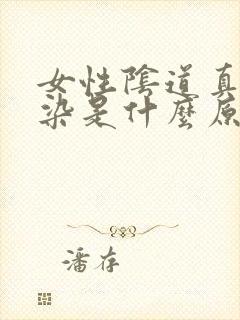 女性陰道真
染是什麼原
潘存